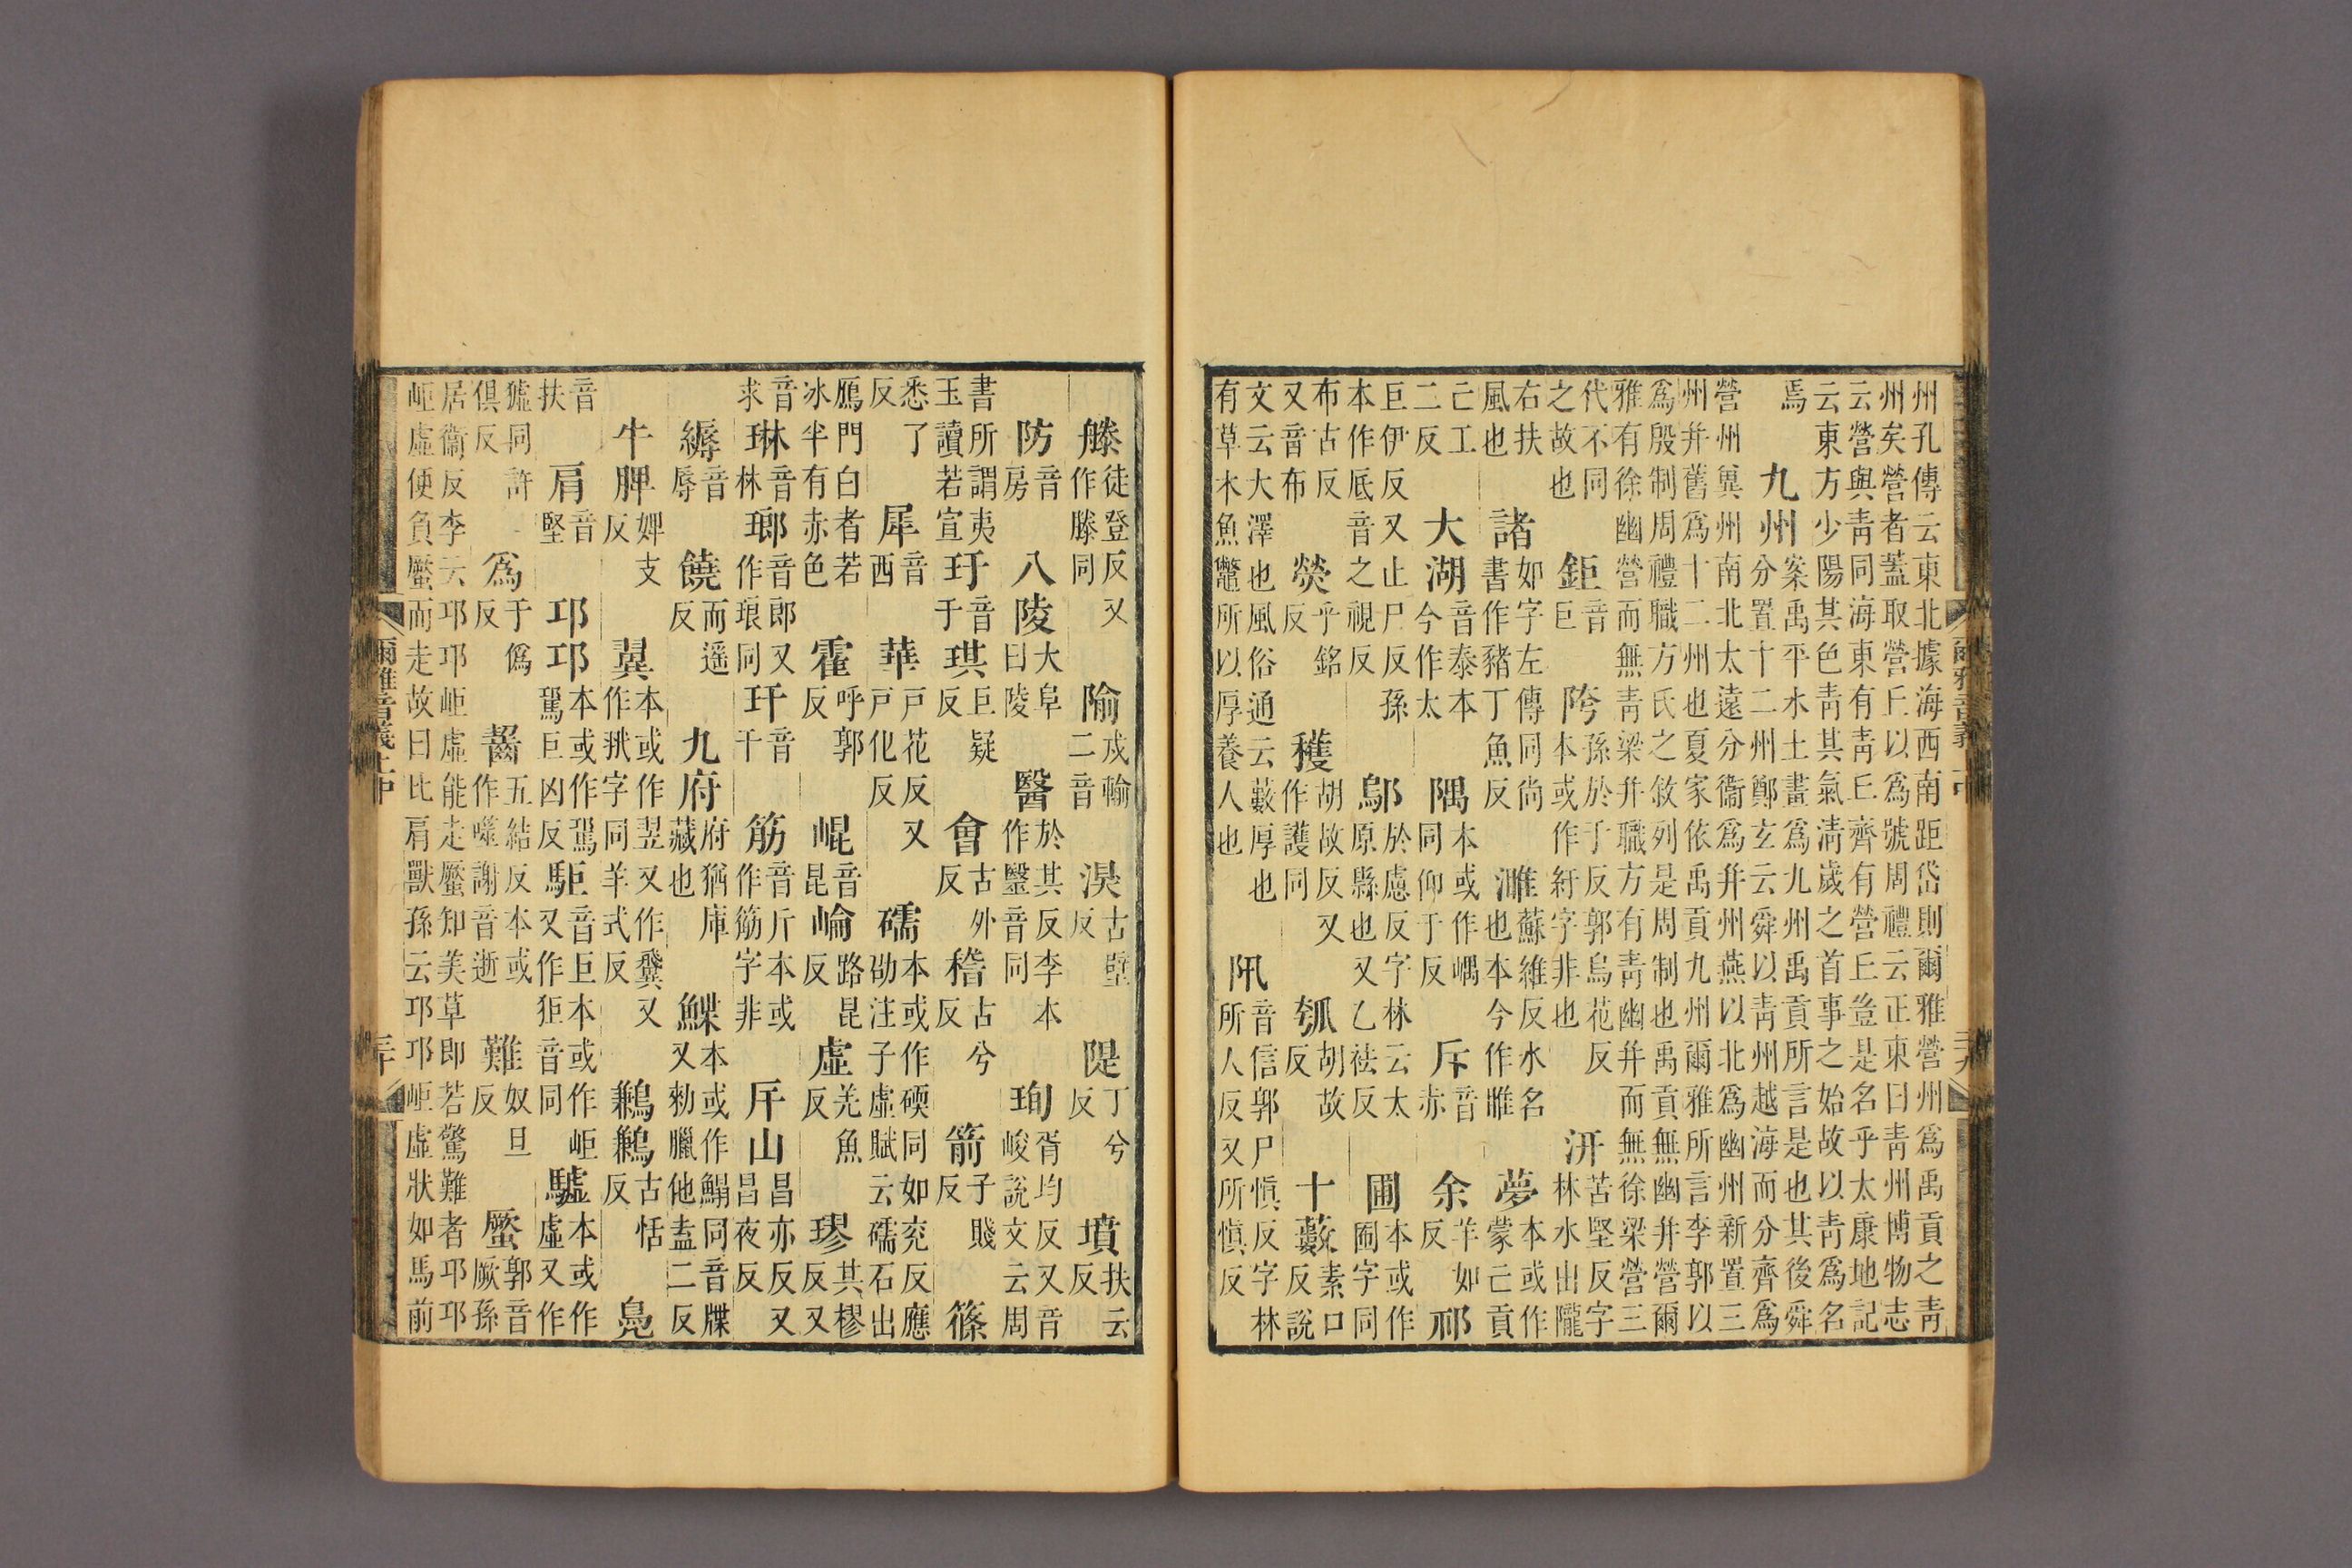 州孔傳云東北據海西南距岱則爾雅營州爲禹貢之靑
州矣營者蓋取營丘以爲號周禮云正東曰靑州博物志
云營與靑同海東有靑丘齊有營丘豈是名乎太康地記
云東方少陽其色靑其氣淸歲之首事之始故以靑爲名
焉九州案禹平水土畫爲九州禹貢所言是也其後舜
分置十二州鄭玄云舜以靑州越海而分齊爲
營州冀州南北太遠分衞爲幷州燕以北爲幽州新置三
州幷舊爲十二州也夏家依禹貢九州爾雅所言李郭以
爲殷制周禮職方氏之敘列是周制也禹貢無幽幷營爾
雅有徐幽營而無靑梁幷職方有靑幽幷而無徐梁營三
代不同之故也鉅音巨陓孫於于反郭烏花反本或作紆字非也汧苦堅反字林水出隴
右扶風也諸如字左傳同尚書作豬丁魚反濉蘇維反水名也本今作睢夢本或作蒙亡貢
亡工二反大湖音泰本今作太隅本或作嵎同仰于反斥音赤余羊如反祁
巨伊反又止尸反孫本作底音之視反鄔於慮反字林云太原縣也又乙祛反圃本或作囿字同
布古反又音布熒乎銘反穫胡故反又作護同瓠胡故反十藪素口反說
文云大澤也風俗通云藪厚也有草木魚鼈所以厚養人也阠音信郭尸愼反字林所人反又所愼反
爾雅音義上中 二十九
徒登反又作滕同隃戍輸二音湨古壁反隄丁兮反墳扶云反
防音房八陵大阜曰陵醫於其反李本作毉音同珣胥均反又音峻說文云周
書所謂夷玉讀若宣玗音于琪巨疑反會古外反稽古兮反箭子賤反篠
悉了反犀音西華戶花反又戶化反礝本或作碝同如兖反應劭注子虛賦云礝石出
鴈門白者若冰半有赤色霍呼郭反崐音昆崘路昆反虛羌魚反璆其樛反又
音求琳音林瑯音郎又作琅同玕音干筋音斤本或作筯字非斥山昌亦反又昌夜反
縟音辱饒而遥反九府府猶庫藏也鰈本或作鰨同音牒又勑臘他盍二反
牛脾婢支反翼本或作翌又作又作字同羊式反鶼鶼古恬反鳧
音扶肩音堅邛邛本或作巨凶反駏音巨本或作岠又作狟音同驉本或作虛又作
同許俱反爲于僞反齧五結反本或作噬謝音逝難奴旦反蟨郭音厥孫
居衞反李云邛邛岠虛能走蟨知美草即若驚難者邛邛
岠虛便負蟨而走故曰比肩獸孫云邛邛岠虛狀如馬前
爾雅音義上中 三十